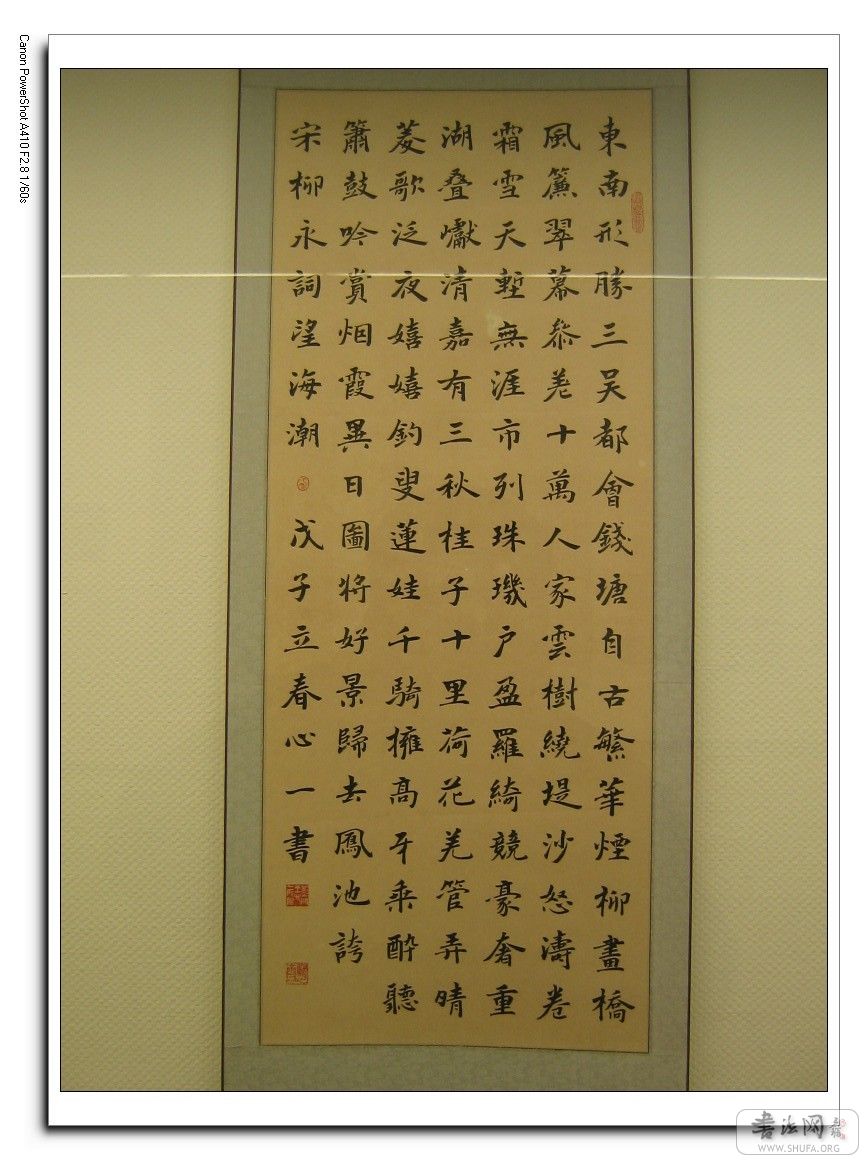 東南形勝三吳都會錢塘自古繁華煙柳畫橋
風簾翠幕叅差十萬人家雲樹繞堤沙怒濤卷
霜雪天塹無涯市列珠璣户盈羅綺競豪奢重
湖叠巘清嘉有三秋桂子十里荷花羌管弄晴
菱歌泛夜嬉嬉釣叟蓮娃千騎擁高牙乘醉聽
簫鼓吟賞烟霞異日圖將好景歸去鳳池誇
宋柳永詞望海潮 戊子立春心一書
Canon PowerShot A410 F2.8 1/60s
书法网
WWW.SHUFA.ORG